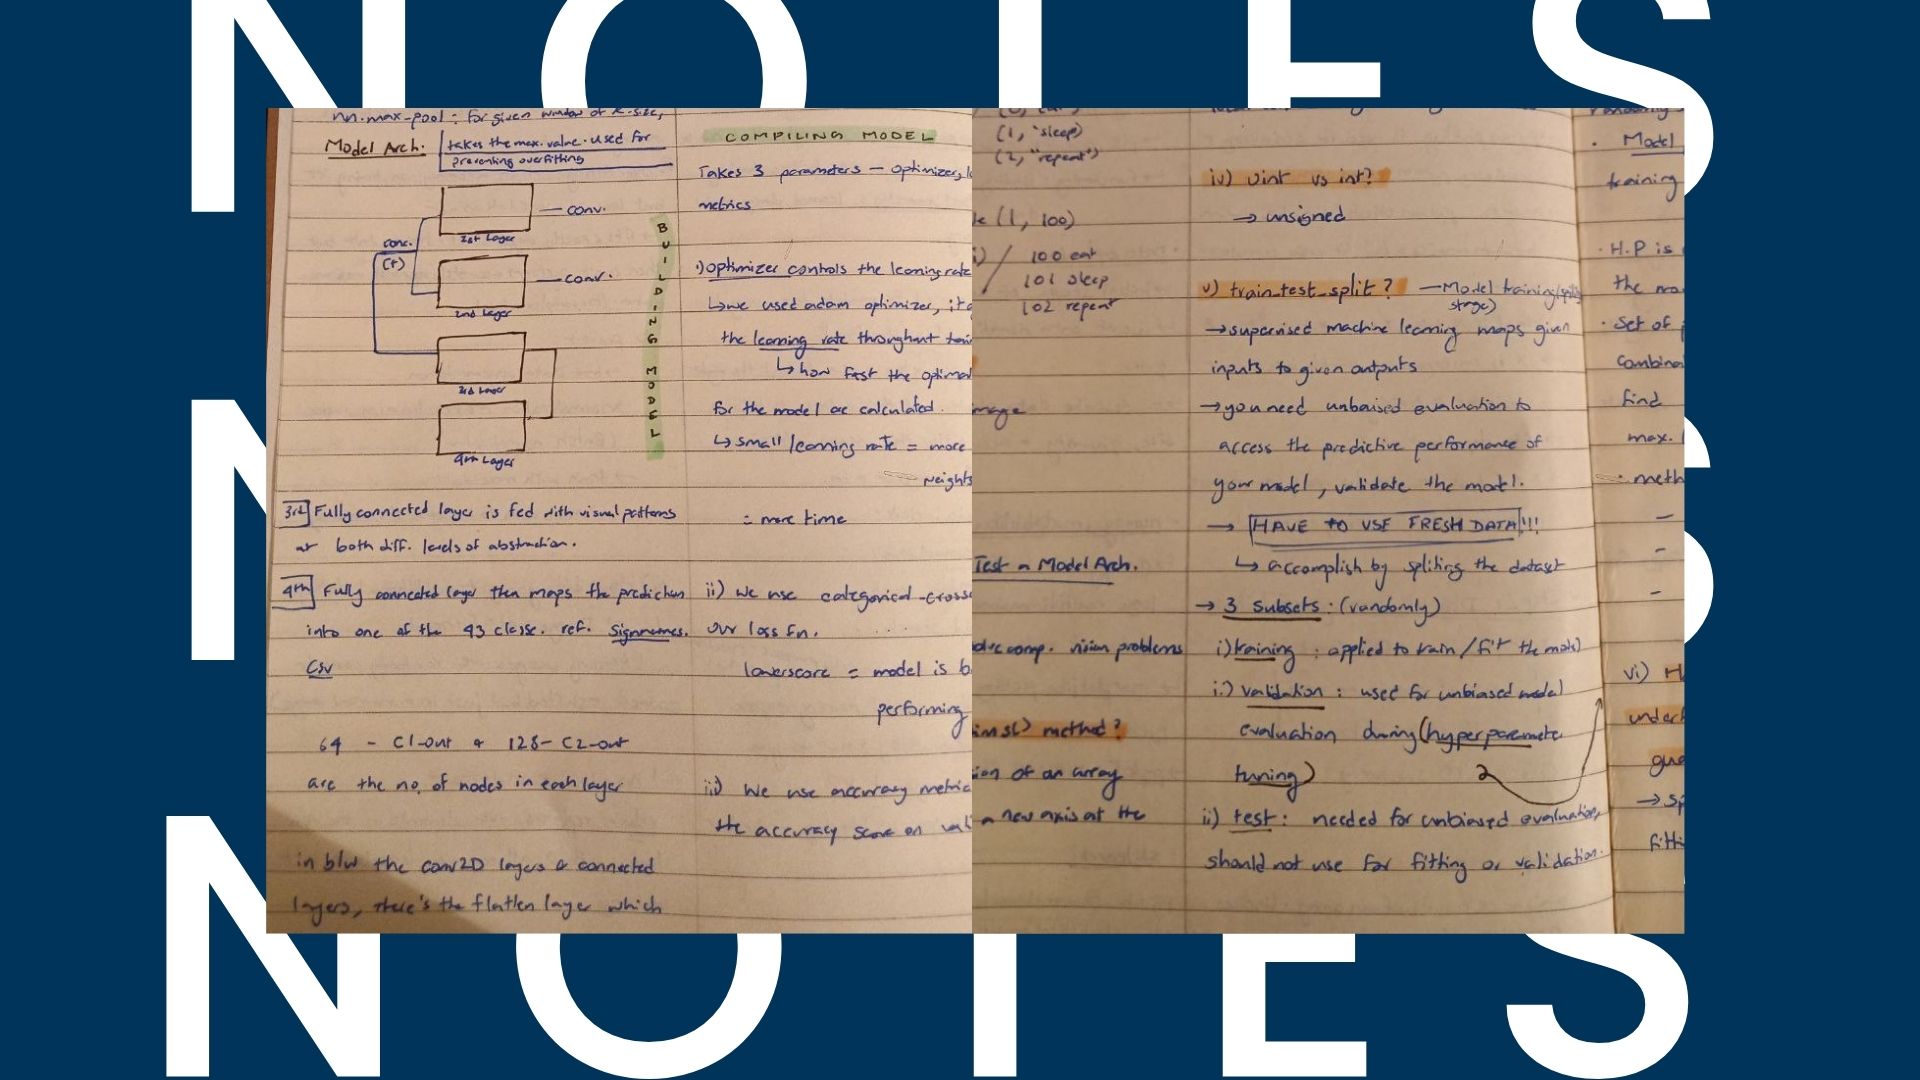 NOTES
NOTES
NOTES
nn.max-pool : for given window of K-size,
takes the max. value. used for
preventing overfitting
Model Arch.
conv.
1st Layer
conc.
(+)
conv.
2nd Layer
3rd Layer
4th Layer
BUILDING MODEL
3rd Fully connected layer is fed with visual patterns
at both diff. levels of abstraction.
4th Fully connected layer then maps the prediction
into one of the 43 classe. ref. Signnames.
CSV
64 - C1-out & 128- C2-out
are the no. of nodes in each layer
in b/w the conv2D layers & connected
layers, there's the flatten layer which
COMPILING MODEL
Takes 3 parameters — optimizer,
metrics
i) optimizer controls the learning rate
↳ we used adam optimizer, it
the learning rate throughout
↳ how fast the optimal
for the model are calculated.
↳ small learning rate = more
weights
= more time
ii) We use categorical-cross
our loss fn.
lowerscore = model is b
performing
iii) We use accuracy metric
the accuracy score on val
(1, "sleep)
(2, "repeat")
(1, 100)
100 eat
101 sleep
102 repeat
mage
Test n Model Arch.
comp. vision problems
method?
ion of an array
a new axis at the
iv) uint vs int?
→ unsigned
v) train_test_split? — Model training
stage)
→ supervised machine learning maps given
inputs to given outputs
→ you need unbaised evaluation to
access the predictive performance of
your model, validate the model.
→ HAVE TO USE FRESH DATA!!!
↳ accomplish by spliting the dataset
→ 3 subsets : (randomly)
i) training : applied to train / fit the model
ii) validation : used for unbiased model
evaluation during (hyperparameter
tuning)
ii) test : needed for unbiased evaluation,
should not use for fitting or validation.
. Model
training
. H.P is
the mo
. Set of
combina
find
max.
. meth
-
-
-
vi) H
→ sp
fitti